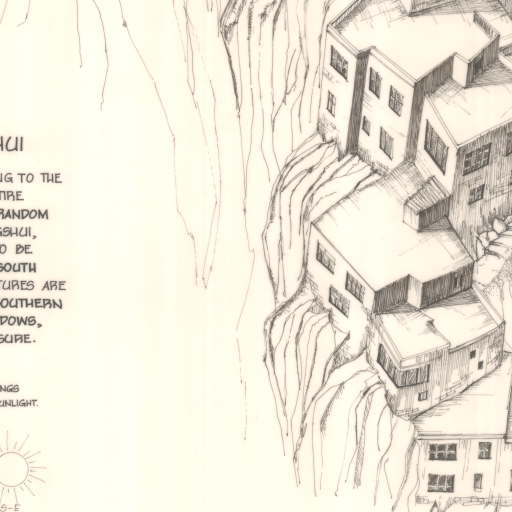 HUI
NG TO THE
TIRE
RANDOM
GSHUI,
O BE
SOUTH
TURES ARE
OUTHERN
DOWS,
SURE.
NGS
UNLIGHT.
S-E